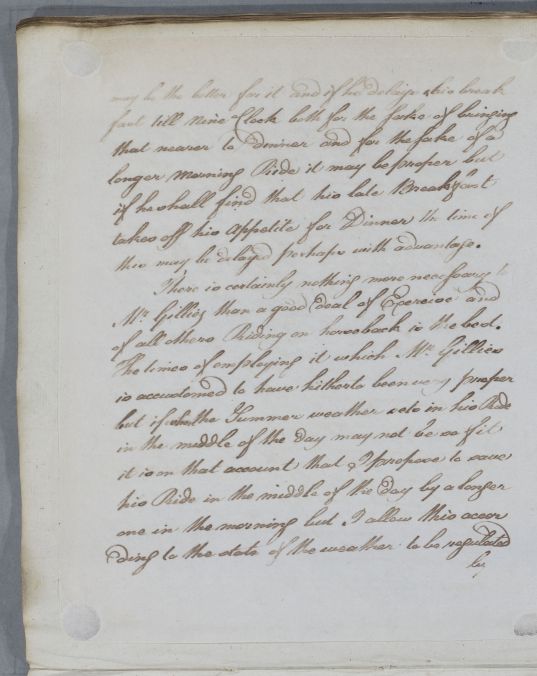 may be the better for it and if he delays his break
fast till Nine o'Clock both for the sake of bringing
that nearer to Dinner and for the sake of a
longer morning Ride it may be proper but
if he shall find that his late Breakfast
takes off his Appetite for Dinner the time of
this may be delayed perhaps with advantage.
There is certainly nothing more necessary to
Mr. Gillies than a good Deal of Exercise and
of all others Riding on horseback is the best.
The times of employing it which Mr. Gillies
is accustomed to have hitherto been very proper
but if when the Summer weather sets in his Ride
in the middle of the Day may not be so fit
it is on that account that I propose to save
his Ride in the middle of the Day by a longer
one in the morning but I allow this accor
ding to the state of the weather to be regulated
by